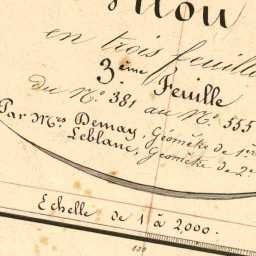 en trois feuill
3ème Feuille
du N.° 381 au N.° 555
Par M.rs Demay, Géomètre de 1.re
Leblanc, Géomètre de 2.e
Echelle de 1 à 2000.